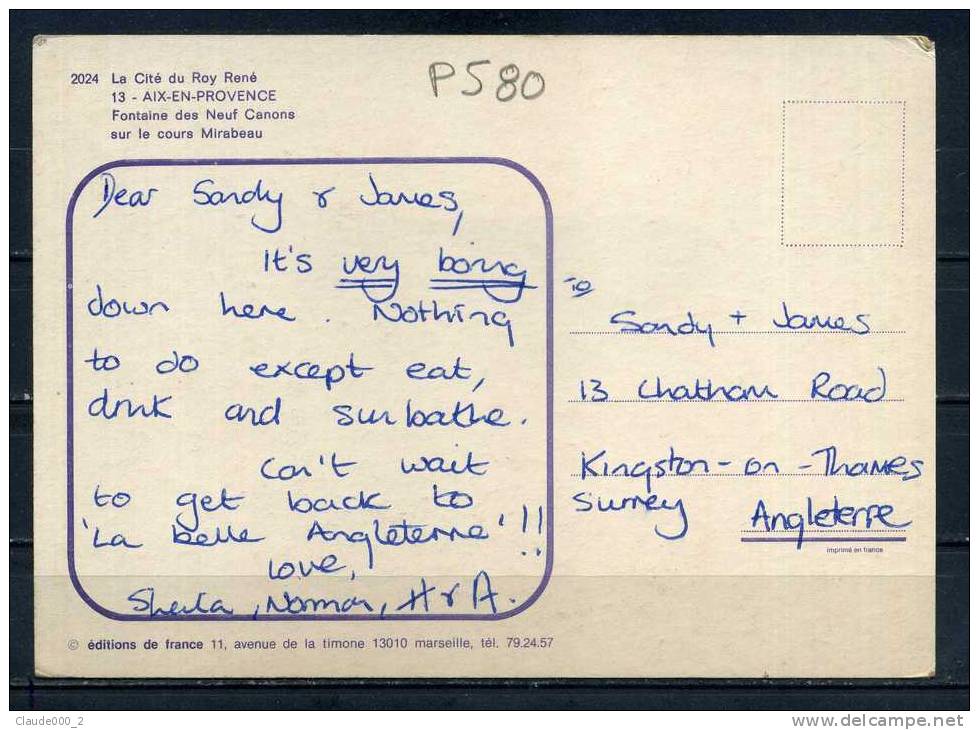 2024 La Cité du Roy René
13 - AIX-EN-PROVENCE
Fontaine des Neuf Canons
sur le cours Mirabeau
P580
Dear Sandy & James,
It's very boring
down here. Nothing
to do except eat,
drink and sunbathe.
Can't wait
to get back to
'La belle Angleterre'!!
Love,
Sheila, Norman, H & A.
To
Sandy + James
13 Chatham Road
Kingston-on-Thames
Surrey Angleterre
imprimé en france
© éditions de france 11, avenue de la timone 13010 marseille, tél. 79.24.57
Claude000_2
delcampe.net